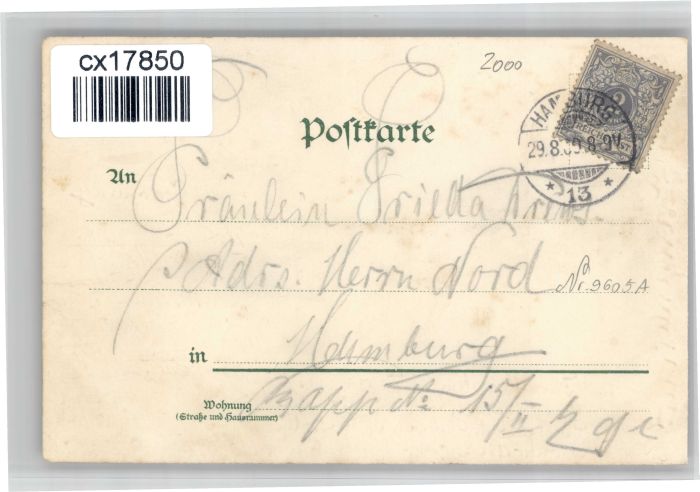 cx17850
2000
Postkarte
HAMBURG
29.8. 8-9V.
* 13 *
An Fräulein Frieda
p. Adrs. Herrn Nord
Nr. 9605A
in Hamburg
Wohnung
(Straße und Hausnummer)
No: 15/II